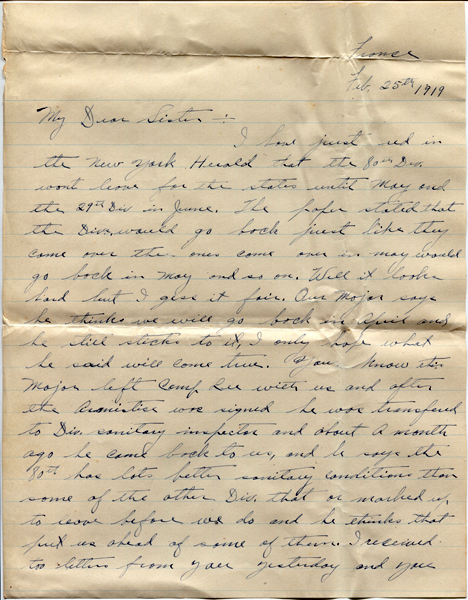 France
Feb. 25th 1919
My Dear Sister :-
I have just red in
the New York Herald that the 80th Div.
wont leave for the states until May and
the 29th Div in June. The paper stated that
the Divs. would go back just like they
come over the ones come over in may would
go back in May and so on. Well it looks
hard but I gess it fair. Our Major says
he thinks we will go back in April and
he still sticks to it, I only hope what
he said will come true. You know this
Major left Camp Lee with us and after
the Aromistise was signed he was transfered
to Div. sanitary inspector and about a month
ago he came back to us, and he says the
80th has lots better sanitary conditions than
some of the other Div. that or marked up
to leave before we do and he thinks that
put us ahead of some of them. I received
too letters from you yesterday and you